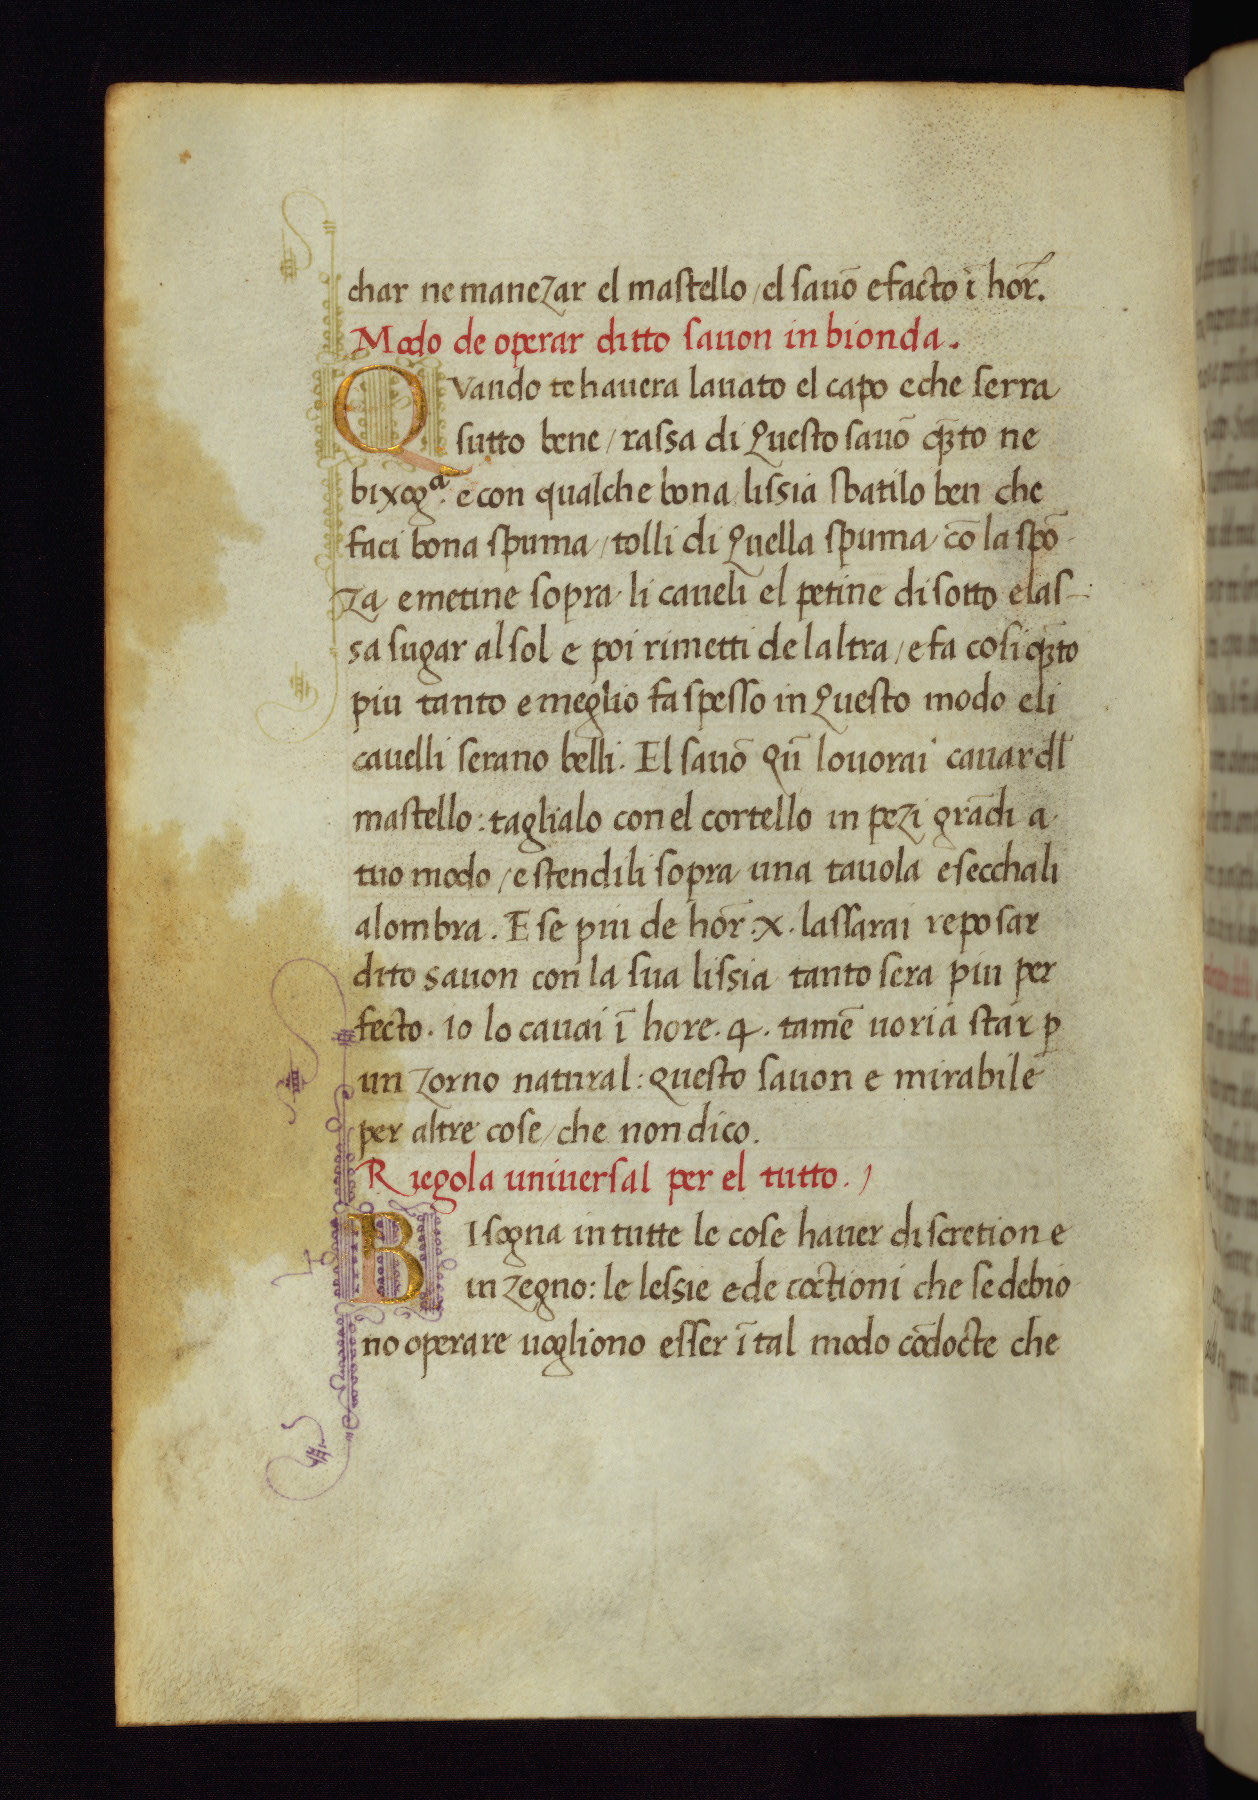 char ne manezar el mastello / el sauō e facto ī hor̄.
Modo de operar ditto sauon in bionda.
QVando te hauera lauato el capo e che serra
sutto bene / rassa di Questo sauō qz̄to ne
bixogᵃ. e con qualche bona lissia sbatilo ben che
faci bona spuma / tolli di Quella spuma cō la spō
za e metine sopra li caueli el petine di sotto e las-
sa sugar al sol e poi rimetti de laltra / e fa cosi qz̄to
piu tanto e meglio fa spesso in Questo modo e li
cauelli serano belli. El sauō Qū lo uorai cauar dl̄
mastello: taglialo con el cortello in pezi grādi a
tuo modo / e stendili sopra una tauola e secchali
a lombra. E se piu de hor̄ .x. lassarai reposar
dito sauon con la sua lissia tanto sera piu per
fecto. io lo cauai ī hore .4. tamē uoria star ꝑ
un zorno natural: questo sauon e mirabile
per altre cose / che non dico.
Riegola uniuersal per el tutto.
BIsogna in tutte le cose hauer discretion e
in zegno: le lessie e de coctioni che se debio
no operare uogliono esser ī tal modo cōdocte che